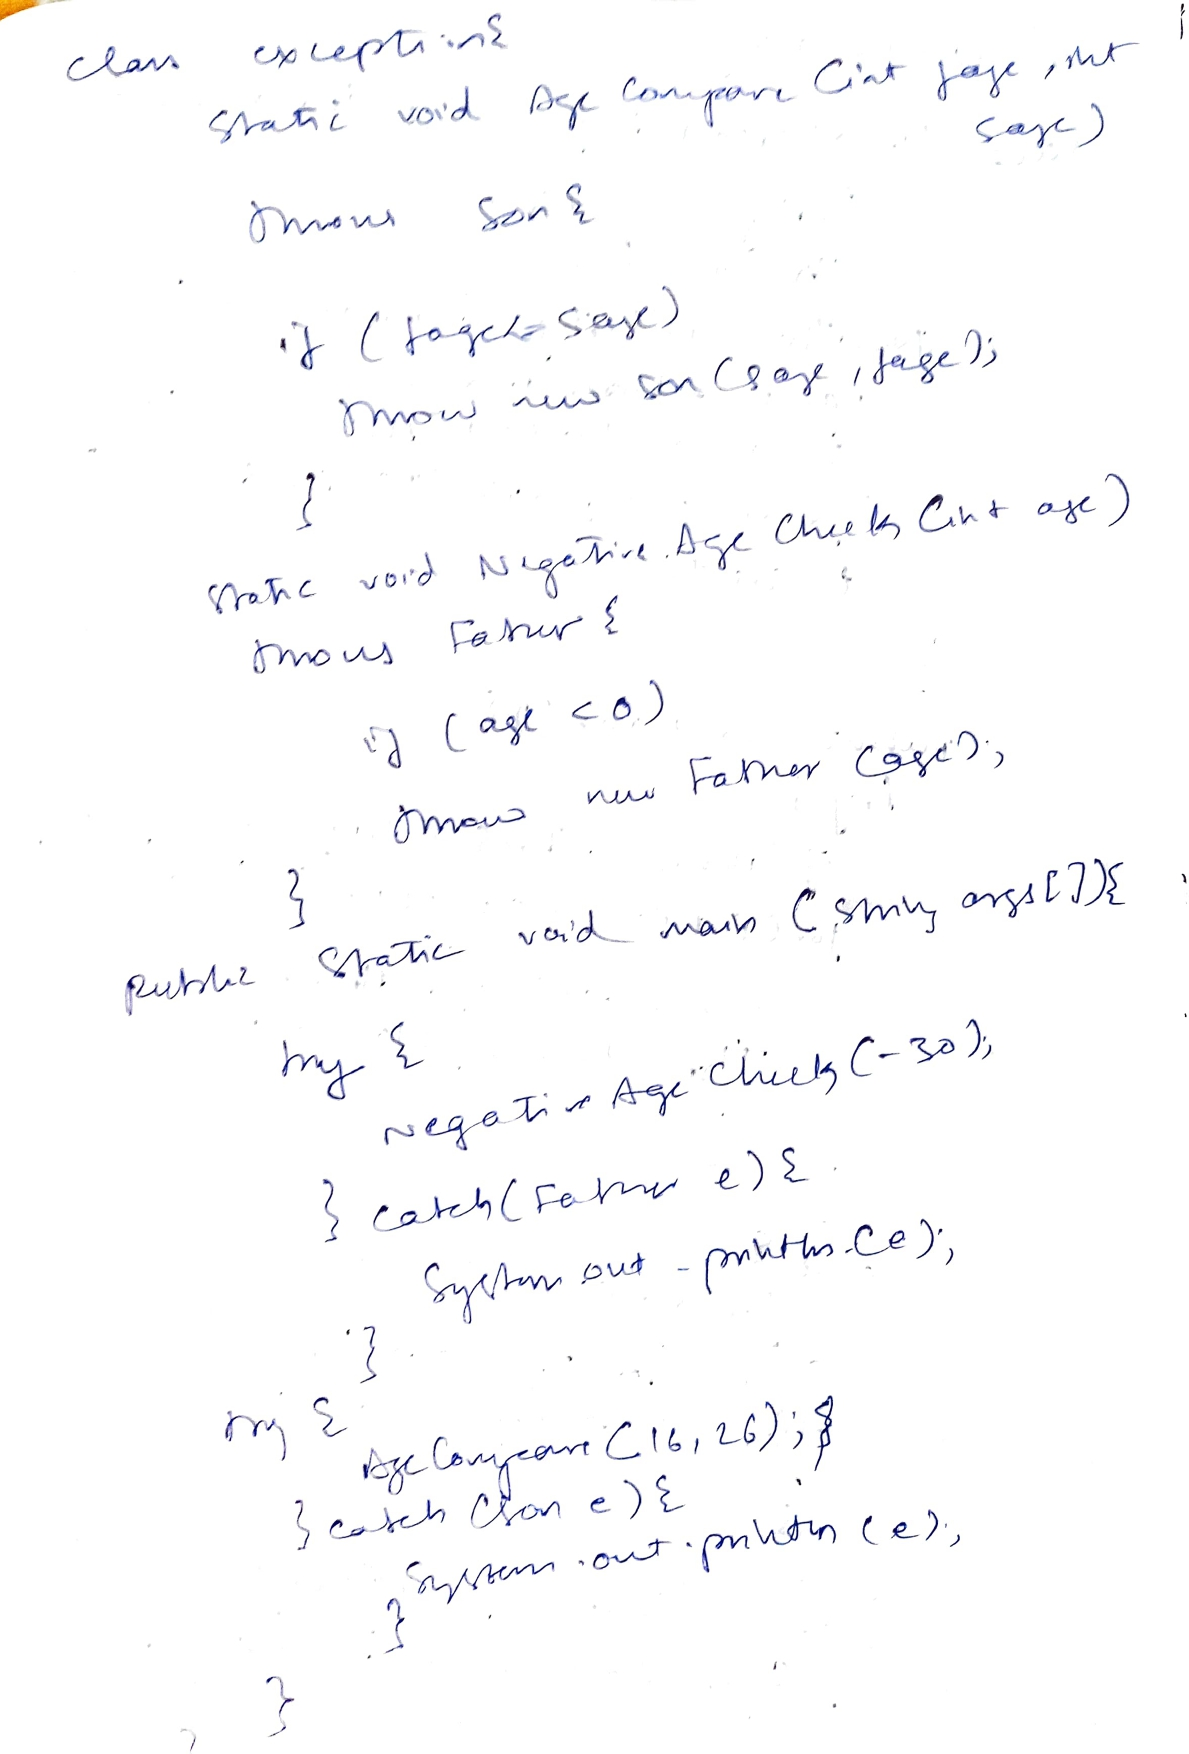 class exception{
static void AgeCompare (int fage, int
sage)
throws Son {
if (fage <= sage)
throw new Son (sage, fage);
}
static void NegativeAgeCheck (int age)
throws Father {
if (age < 0)
throw new Father (age);
}
public static void main (String args[]){
try {
NegativeAgeCheck (-30);
} catch (Father e) {
System.out.println (e);
}
try {
AgeCompare (16, 26);
} catch (Son e) {
System.out.println (e);
}
}